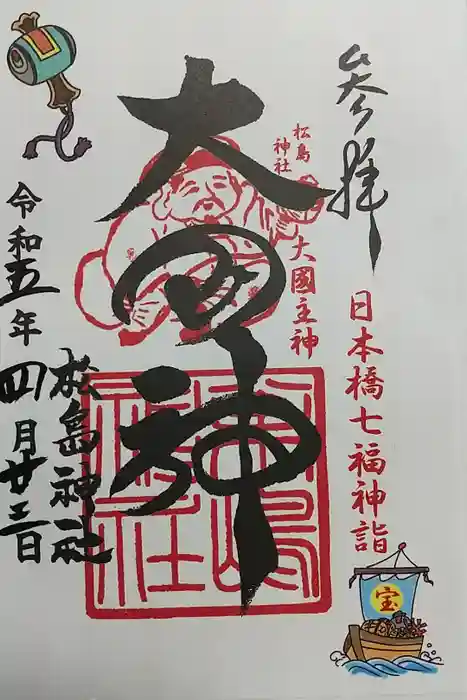 参拝
日本橋七福神詣
松島
神社
大國主神
大国神
松島神社
松島神社
令和五年
四月廿三日
宝